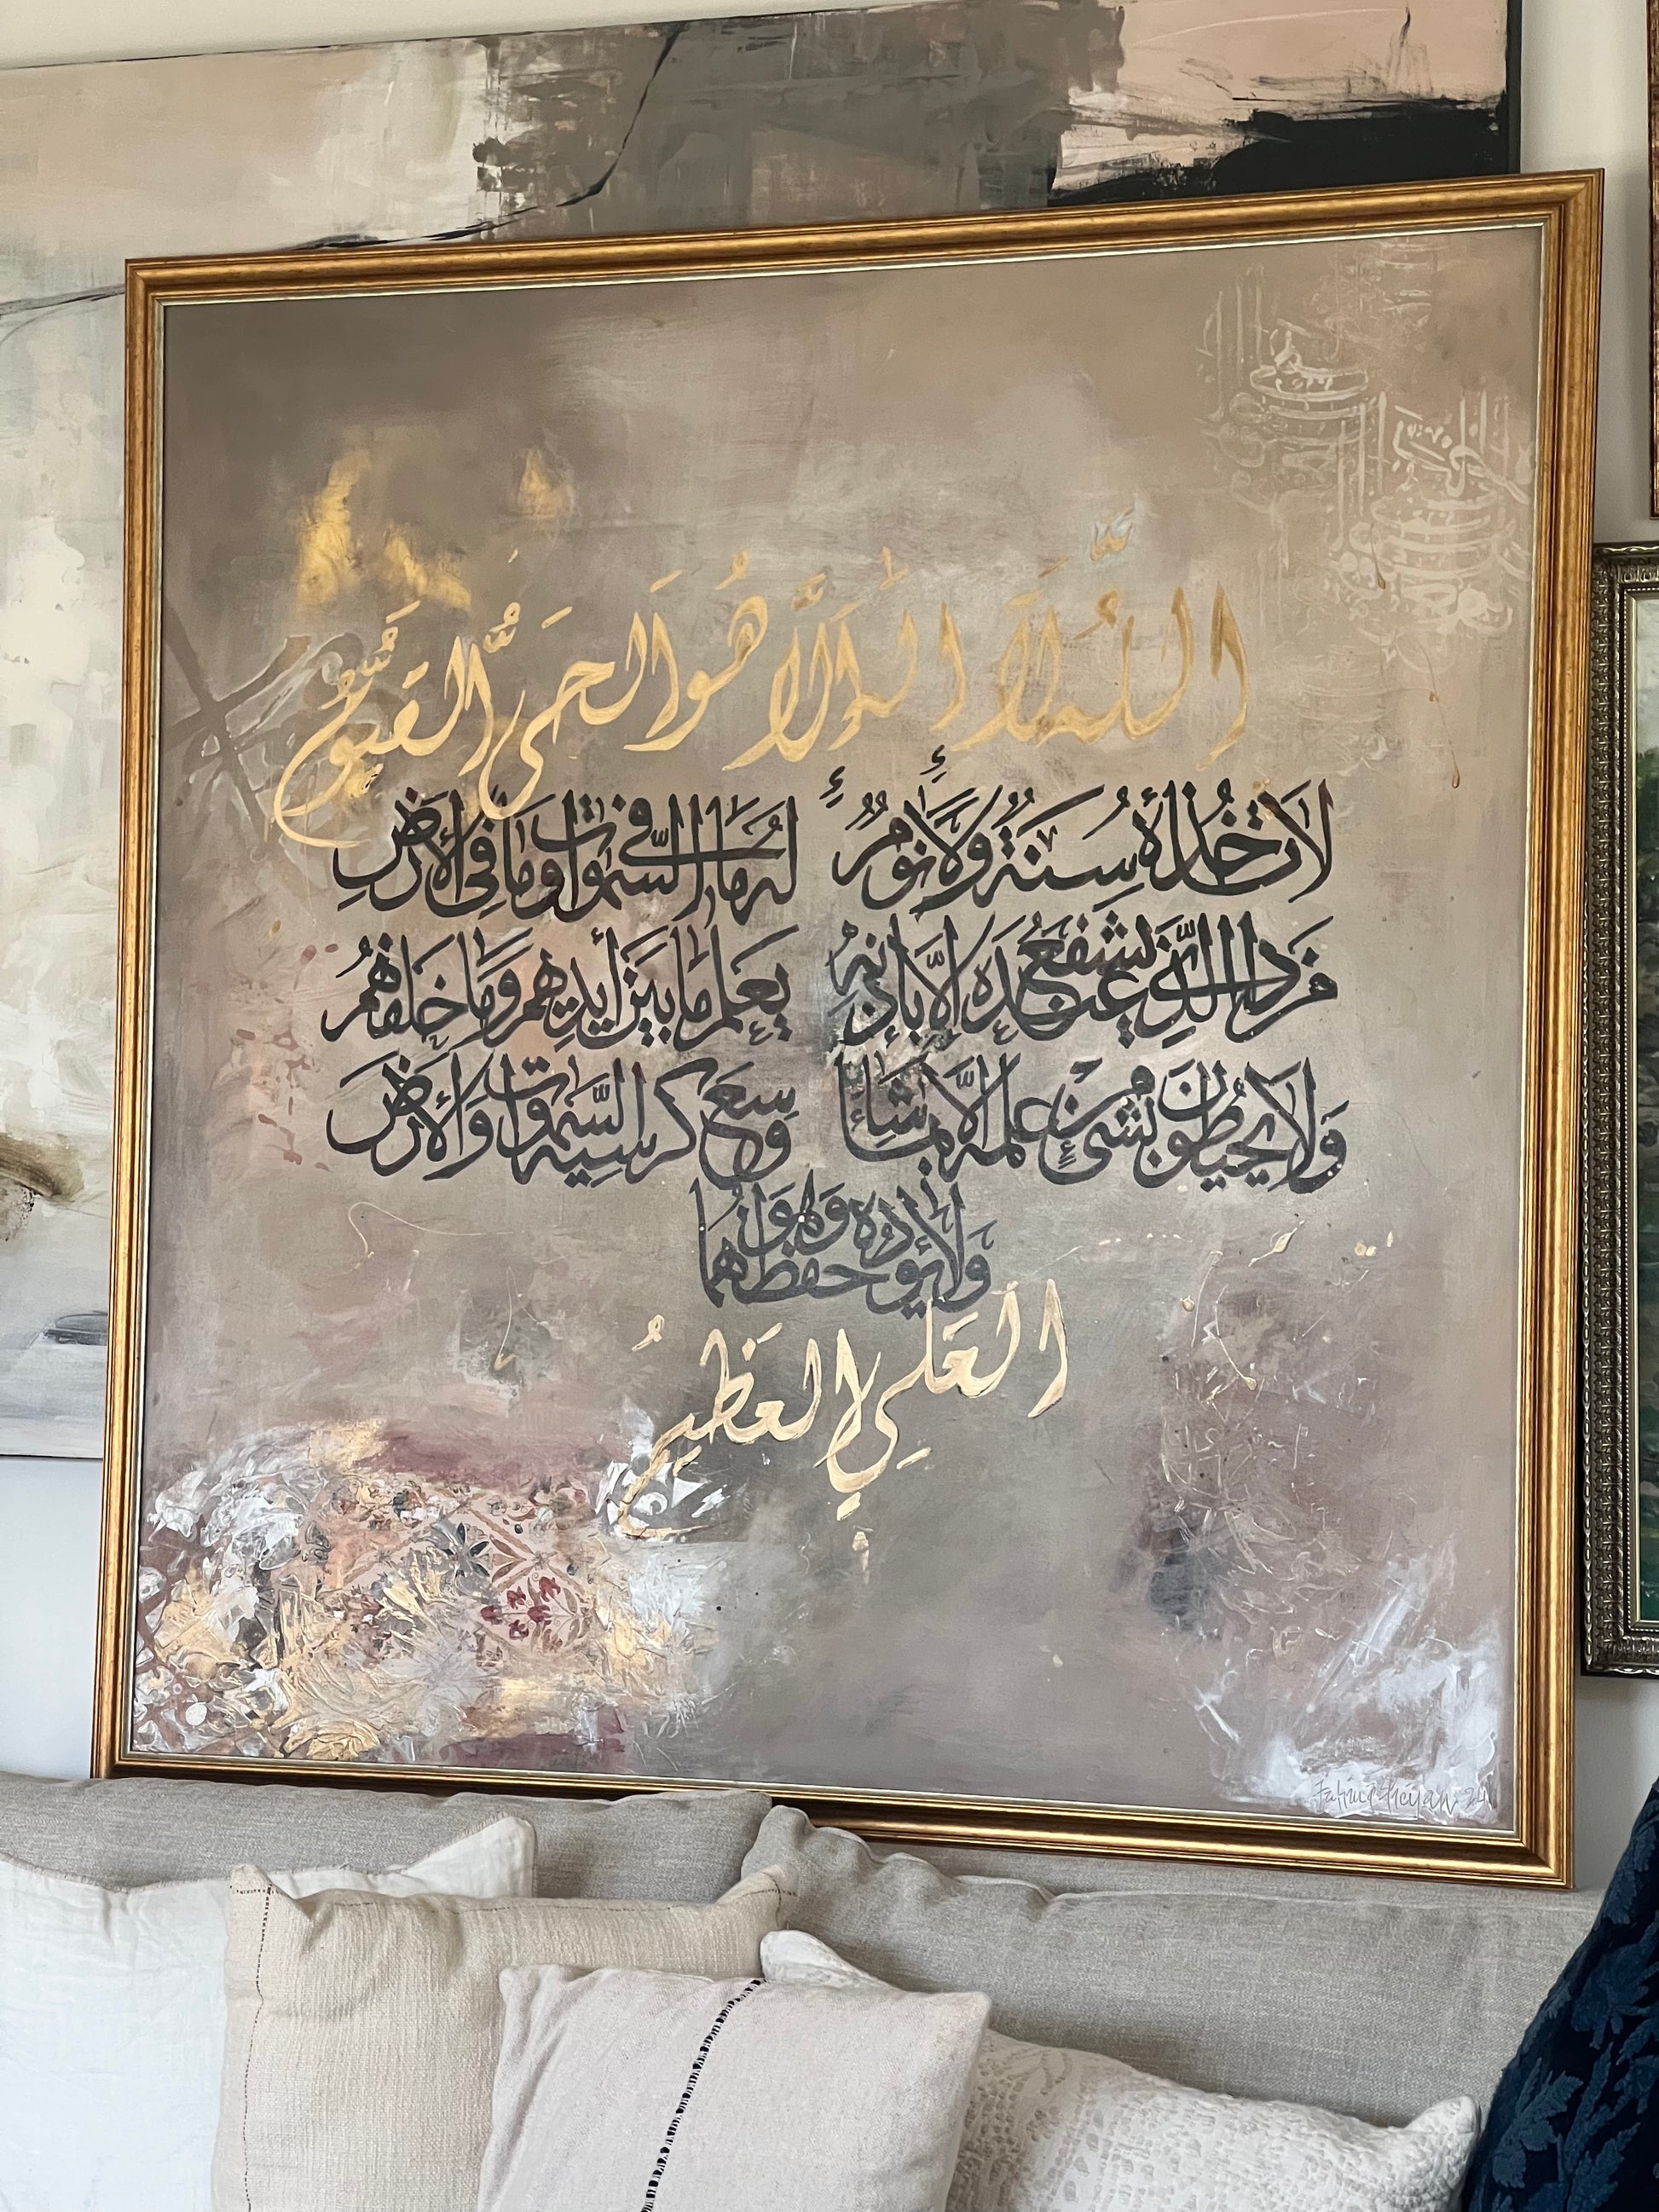 اللهُ لَا إِلَٰهَ إِلَّا هُوَ الْحَيُّ الْقَيُّومُ
لَا تَأْخُذُهُ سِنَةٌ وَلَا نَوْمٌ لَهُ مَا فِي السَّمَٰوَاتِ وَمَا فِي الْأَرْضِ
مَن ذَا الَّذِي يَشْفَعُ عِندَهُ إِلَّا بِإِذْنِهِ يَعْلَمُ مَا بَيْنَ أَيْدِيهِمْ وَمَا خَلْفَهُمْ
وَلَا يُحِيطُونَ بِشَيْءٍ مِنْ عِلْمِهِ إِلَّا بِمَا شَاءَ وَسِعَ كُرْسِيُّهُ السَّمَٰوَاتِ وَالْأَرْضَ
وَلَا يَئُودُهُ حِفْظُهُمَا وَهُوَ
الْعَلِيُّ الْعَظِيمُ